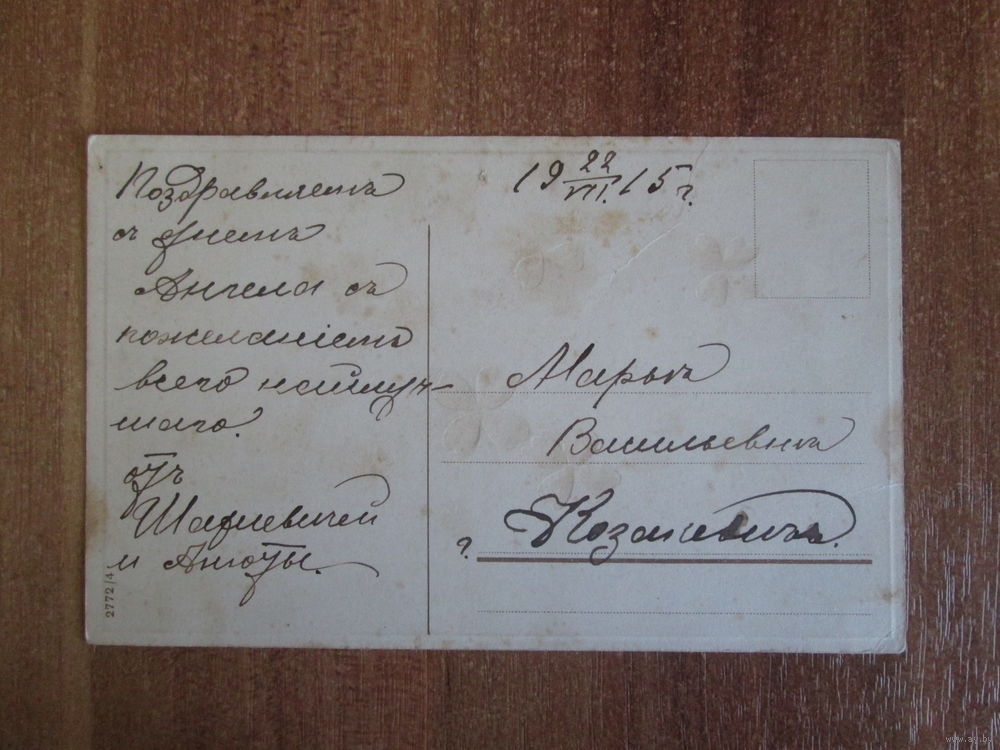 Поздравляемъ
съ днемъ
Ангела съ
пожеланіемъ
всего наилуч-
шаго.
отъ
и Анюты.
2772/4
19 22/VII. 15 г.
Марья
Васильевна
г. Козакевичъ.
www.ay.by